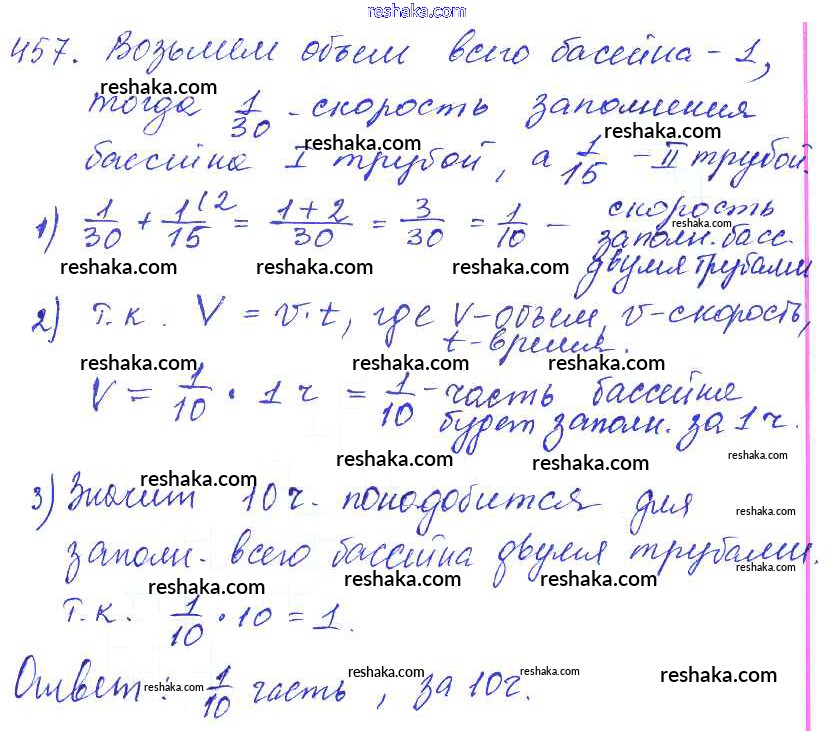 reshaka.com
457. Возьмем объем всего басейна - 1,
reshaka.com
reshaka.com
тогда 1/30 - скорость заполнения
reshaka.com
reshaka.com
бассейна I трубой, а 1/15 - II трубой.
1) 1/30 + 1/15 (2 = (1+2)/30 = 3/30 = 1/10 - скорость
reshaka.com
заполн. басс.
reshaka.com reshaka.com reshaka.com
двумя трубами
2) т.к. V = v·t, где V-объем, v-скорость,
t-время.
reshaka.com reshaka.com reshaka.com
V = 1/10 · 1 ч = 1/10 - часть бассейна
будет заполн. за 1 ч.
reshaka.com reshaka.com reshaka.com
reshaka.com
3) Значит 10 ч. понадобится для
reshaka.com
заполн. всего бассейна двумя трубами.
reshaka.com
reshaka.com reshaka.com reshaka.com
т.к. 1/10 · 10 = 1.
Ответ: 1/10 часть, за 10 ч.
reshaka.com reshaka.com reshaka.com reshaka.com